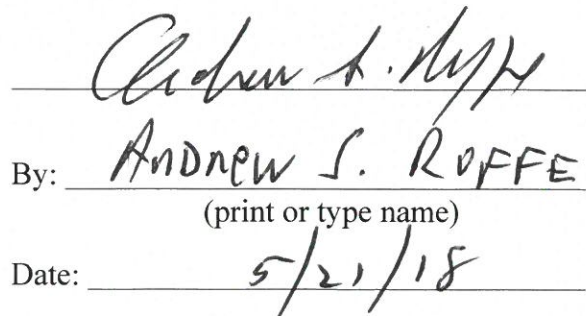 Andrew S. Roffe
By: AnDnew S. ROFFE
(print or type name)
Date: 5/21/18